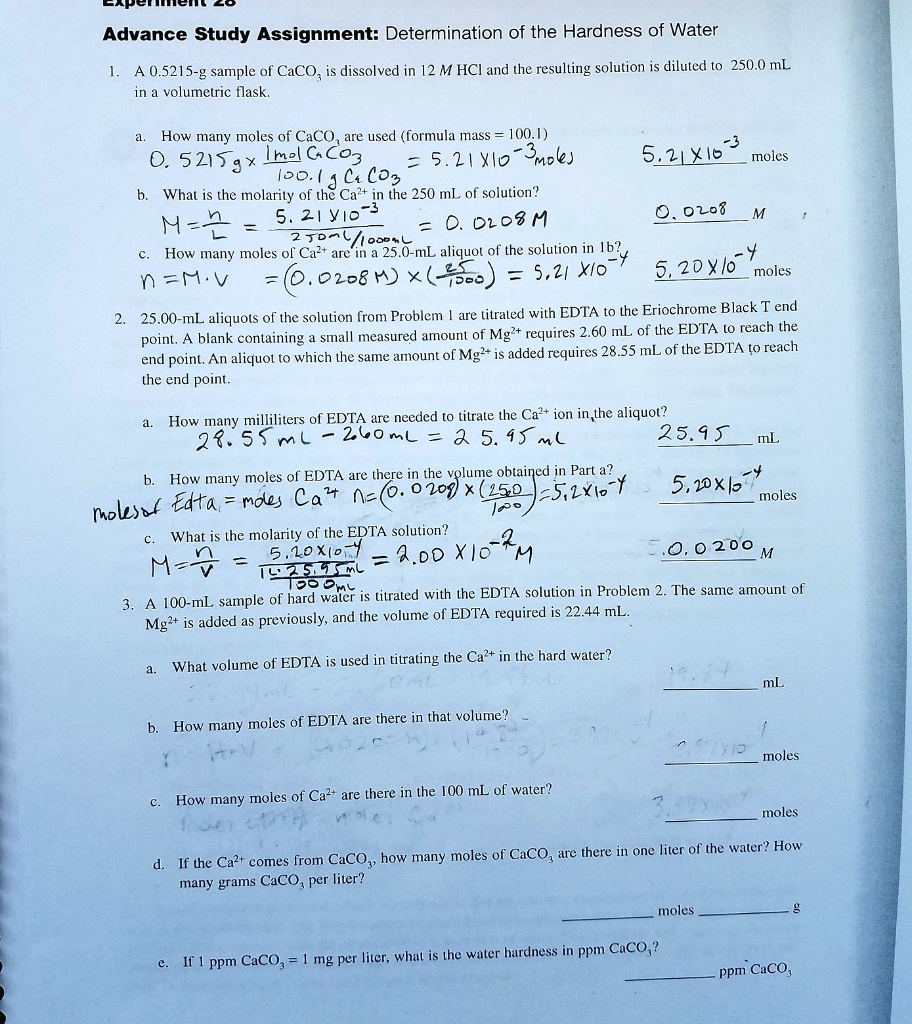 Experiment 28
Advance Study Assignment: Determination of the Hardness of Water
1. A 0.5215-g sample of CaCO₃ is dissolved in 12 M HCl and the resulting solution is diluted to 250.0 mL
in a volumetric flask.
a. How many moles of CaCO₃ are used (formula mass = 100.1)
0.5215g x 1mol CaCO3 / 100.1g CaCO3 = 5.21 X10⁻³ moles 5.21 X10⁻³ moles
b. What is the molarity of the Ca²⁺ in the 250 mL of solution?
M = n/L = 5.21 X10⁻³ / 250mL/1000mL = 0.0208M 0.0208 M
c. How many moles of Ca²⁺ are in a 25.0-mL aliquot of the solution in 1b?
n = M·V = (0.0208 M) x (25/1000) = 5.21 X10⁻⁴ 5.20 X10⁻⁴ moles
2. 25.00-mL aliquots of the solution from Problem 1 are titrated with EDTA to the Eriochrome Black T end
point. A blank containing a small measured amount of Mg²⁺ requires 2.60 mL of the EDTA to reach the
end point. An aliquot to which the same amount of Mg²⁺ is added requires 28.55 mL of the EDTA to reach
the end point.
a. How many milliliters of EDTA are needed to titrate the Ca²⁺ ion in the aliquot?
28.55 mL - 2.60 mL = 25.95 mL 25.95 mL
b. How many moles of EDTA are there in the volume obtained in Part a?
moles of Edta = moles Ca²⁺ n = (0.0208) x = 5.2x10⁻⁴ 5.20x10⁻⁴ moles
c. What is the molarity of the EDTA solution?
M = n/V = 5.20X10⁻⁴ / 25.95mL 1000mL = 2.00 X10⁻² M 0.0200 M
3. A 100-mL sample of hard water is titrated with the EDTA solution in Problem 2. The same amount of
Mg²⁺ is added as previously, and the volume of EDTA required is 22.44 mL.
a. What volume of EDTA is used in titrating the Ca²⁺ in the hard water?
mL
b. How many moles of EDTA are there in that volume?
moles
c. How many moles of Ca²⁺ are there in the 100 mL of water?
moles
d. If the Ca²⁺ comes from CaCO₃, how many moles of CaCO₃ are there in one liter of the water? How
many grams CaCO₃ per liter?
moles g
e. If 1 ppm CaCO₃ = 1 mg per liter, what is the water hardness in ppm CaCO₃?
ppm CaCO₃